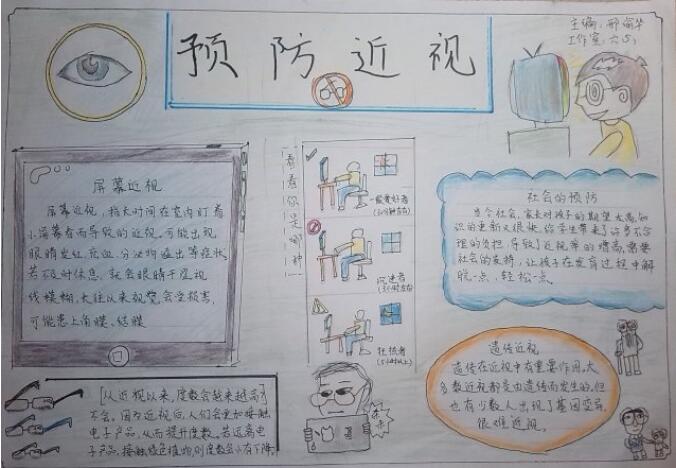 预防近视
主编:邢渝华
工作室:六(5)
屏幕近视
屏幕近视,指长时间在室内盯看
小荧幕而导致的近视。可能出现
眼睛发红、充血、分泌物溢出等症状。
若不及时休息,就会眼睛干涩视
线模糊,长往以来视觉会受损害,
可能患上角膜、结膜
看看你是哪种
一般爱好者
沉迷者
狂热者
社会的预防
当今社会,家长对孩子的期望太高,知
识的更新又很快,给学生带来了许多不合
理的负担,导致了近视率的增高,需要
社会的支持,让孩子在发育过程中解
脱一点,轻松一点。
遗传近视
遗传在近视中有重要作用。大
多数近视都是由遗传而发生的,但
也有少数人出现了基因变异,
很难近视。
[从近视以来,度数会越来越高?]
不会,因为近视后,人们会更加接触
电子产品,从而提升度数。若远离电
子产品,接触绿色植物,则度数会小有下降。